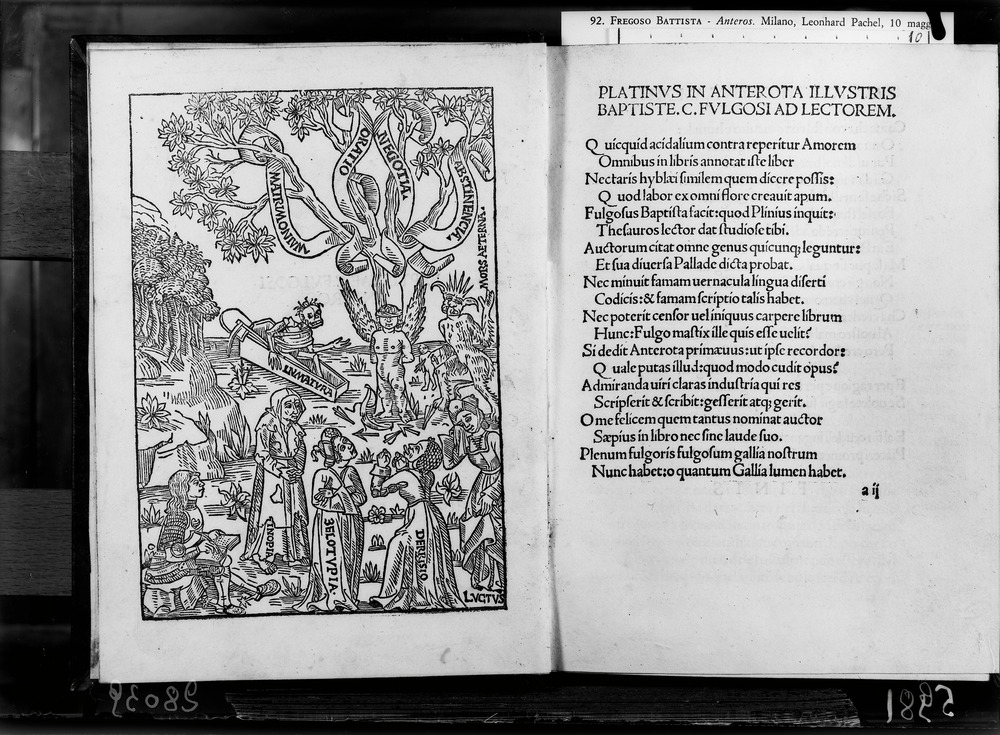 92. FREGOSO BATTISTA - Anteros. Milano, Leonhard Pachel, 10 magg
10
MATRIMONIVM
ORATIO
NEGOTIA
ABSTINENCIA
MORS AETERNA
INMATVRA
INOPIA
ZELOTVPIA
DERISIO
LVGTVS
PLATINVS IN ANTEROTA ILLVSTRIS
BAPTISTE. C. FVLGOSI AD LECTOREM.
Quicquid acidalium contra reperitur Amorem
Omnibus in libris annotat iste liber
Nectaris hyblæi similem quem dicere possis:
Quod labor ex omni flore creauit apum.
Fulgosus Baptista facit: quod Plinius inquit:
Thesauros lector dat studiose tibi.
Auctorum citat omne genus quicunq; leguntur:
Et sua diuersa Pallade dicta probat.
Nec minuit famam uernacula lingua diserti
Codicis: & famam scriptio talis habet.
Nec poterit censor uel iniquus carpere librum
Hunc: Fulgo mastix ille quis esse uelit?
Si dedit Anterota primæuus: ut ipse recordor:
Quale putas illud: quod modo cudit opus?
Admiranda uiri claras industria qui res
Scripserit & scribit: gesserit atq; gerit.
O me felicem quem tantus nominat auctor
Sæpius in libro nec sine laude suo.
Plenum fulgoris fulgosum gallia nostrum
Nunc habet: o quantum Gallia lumen habet.
a ij